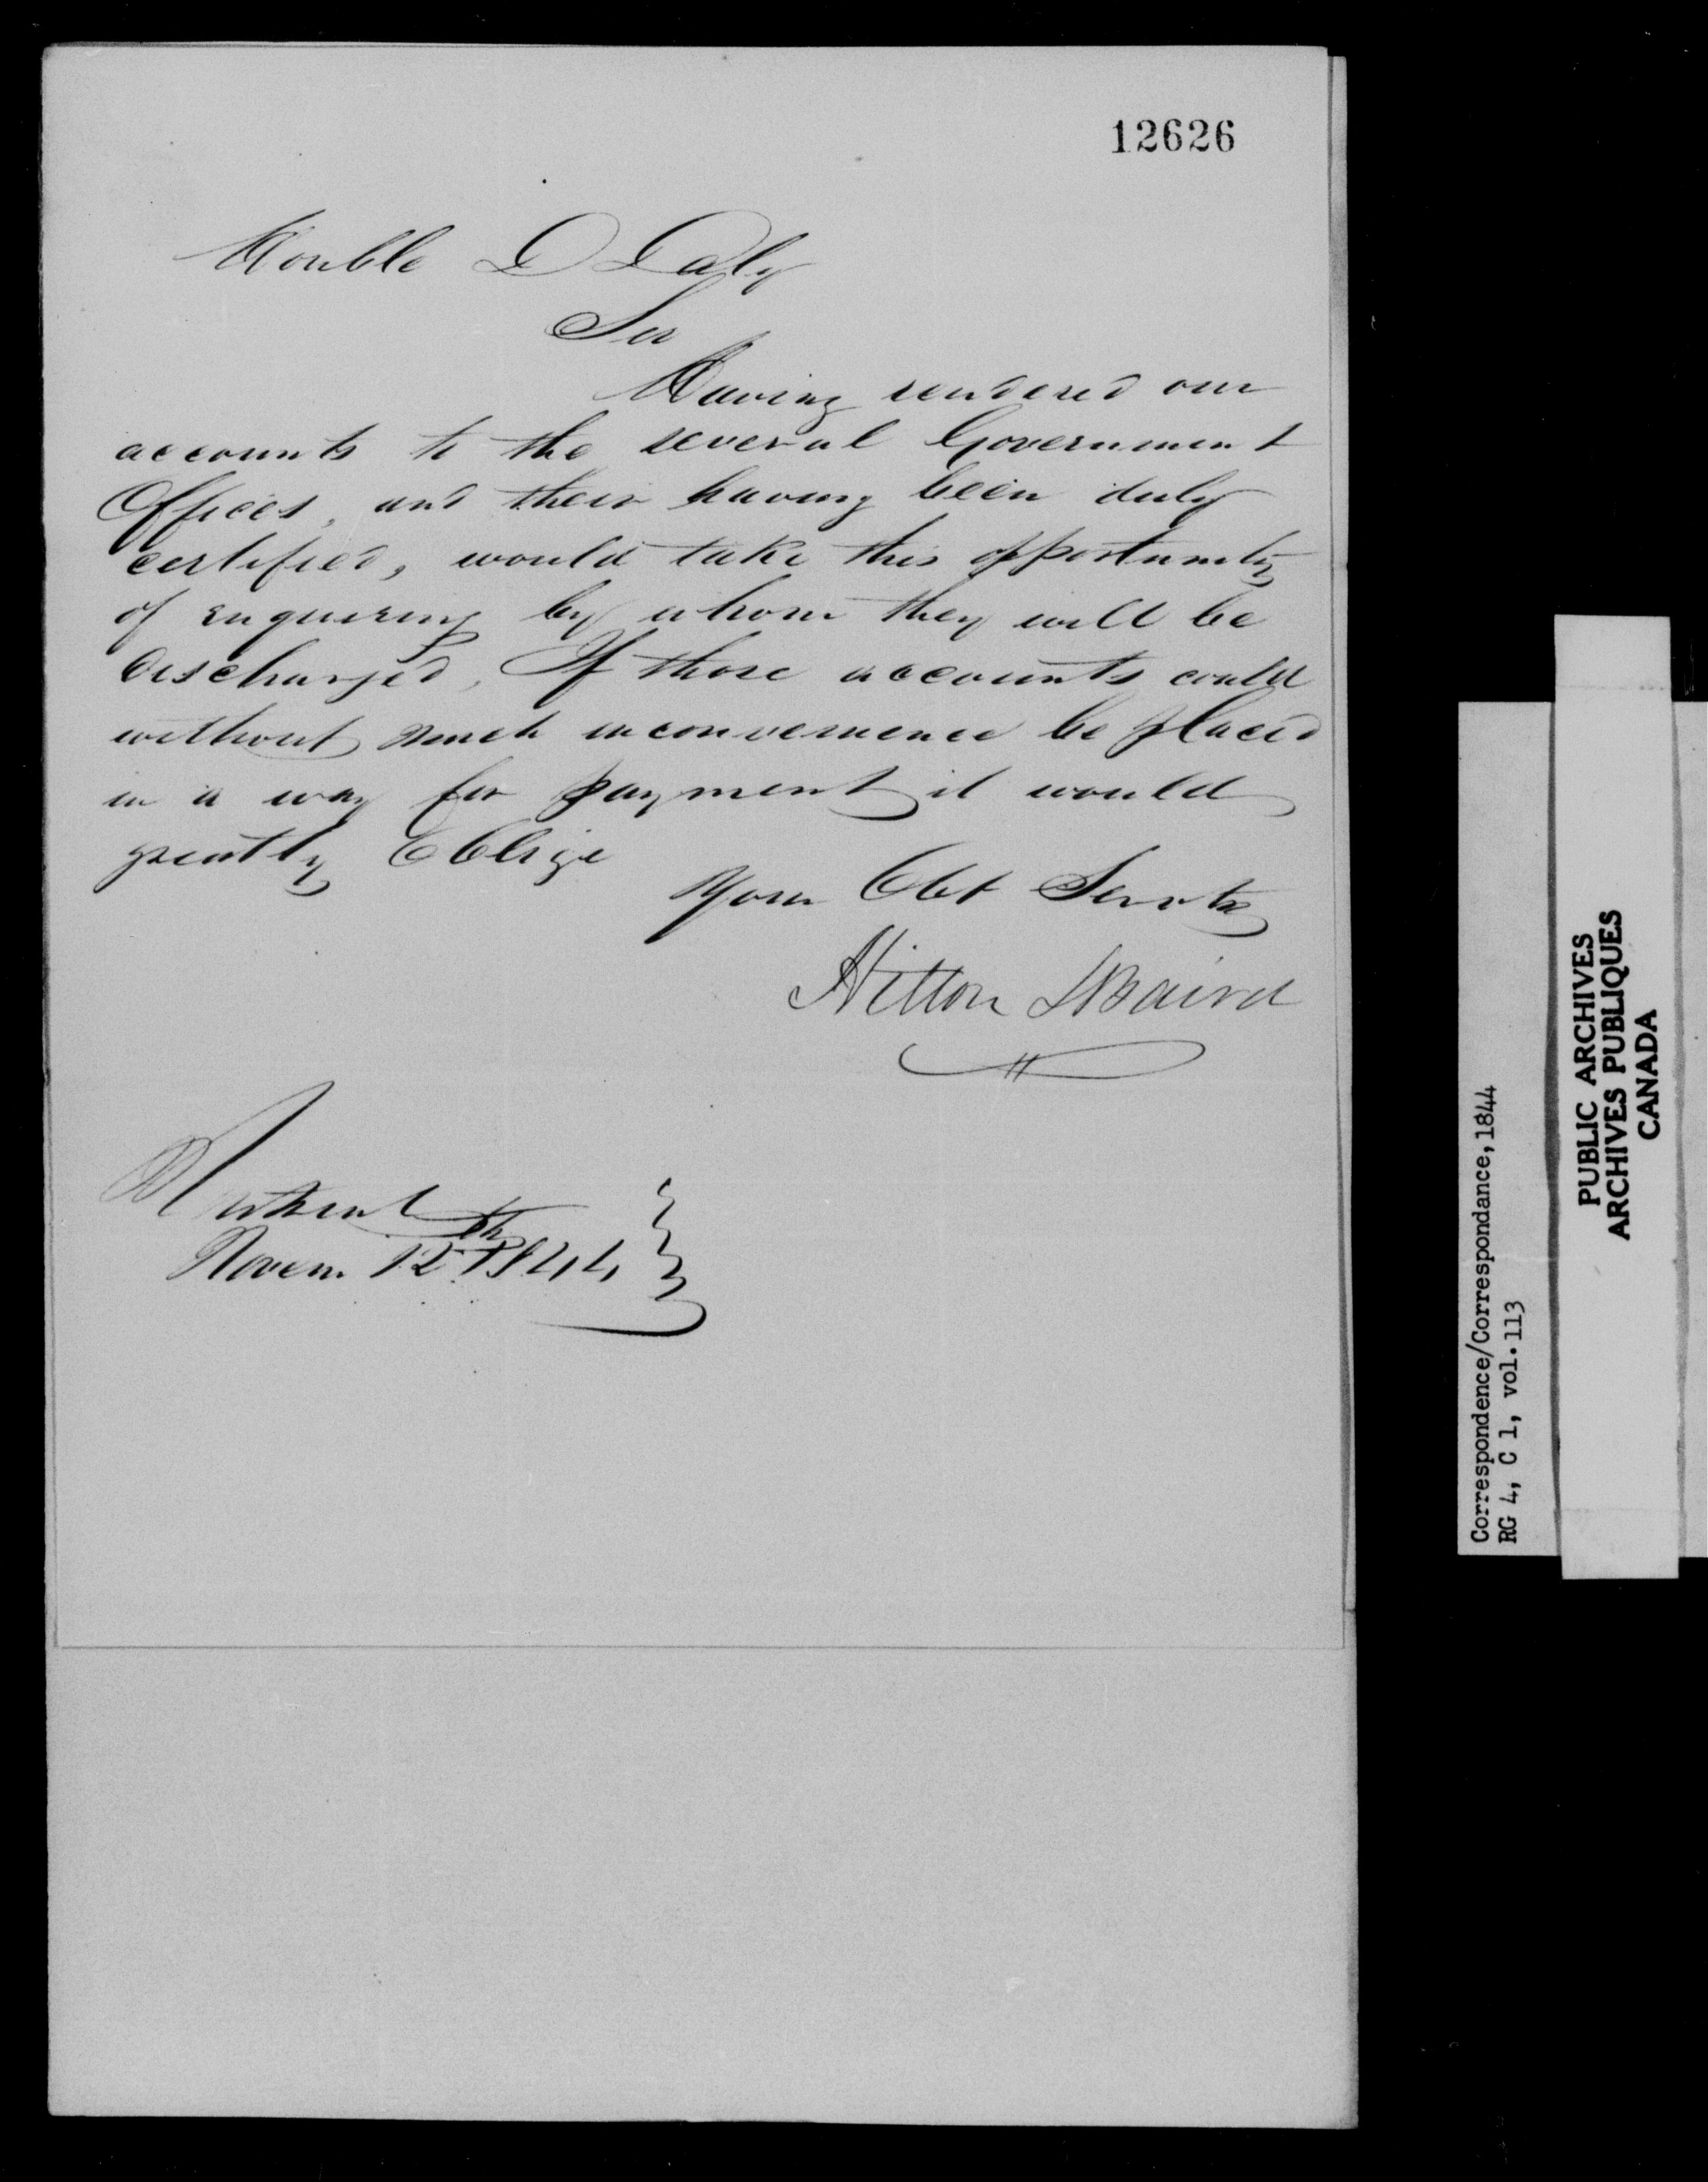 12626
Honble D Daly
Sir
Having rendered our
accounts to the several Government
Offices, and their having been duly
certified, would take this opportunity
of enquiring by whom they will be
discharged, If those accounts could
without much inconvenience be placed
in a way for payment it would
greatly Oblige
Your Obt Servts
Hilton & Baird
Montreal
Novem 12th 1844
Correspondence/Correspondance, 1844
RG 4, C 1, vol. 113
PUBLIC ARCHIVES
ARCHIVES PUBLIQUES
CANADA